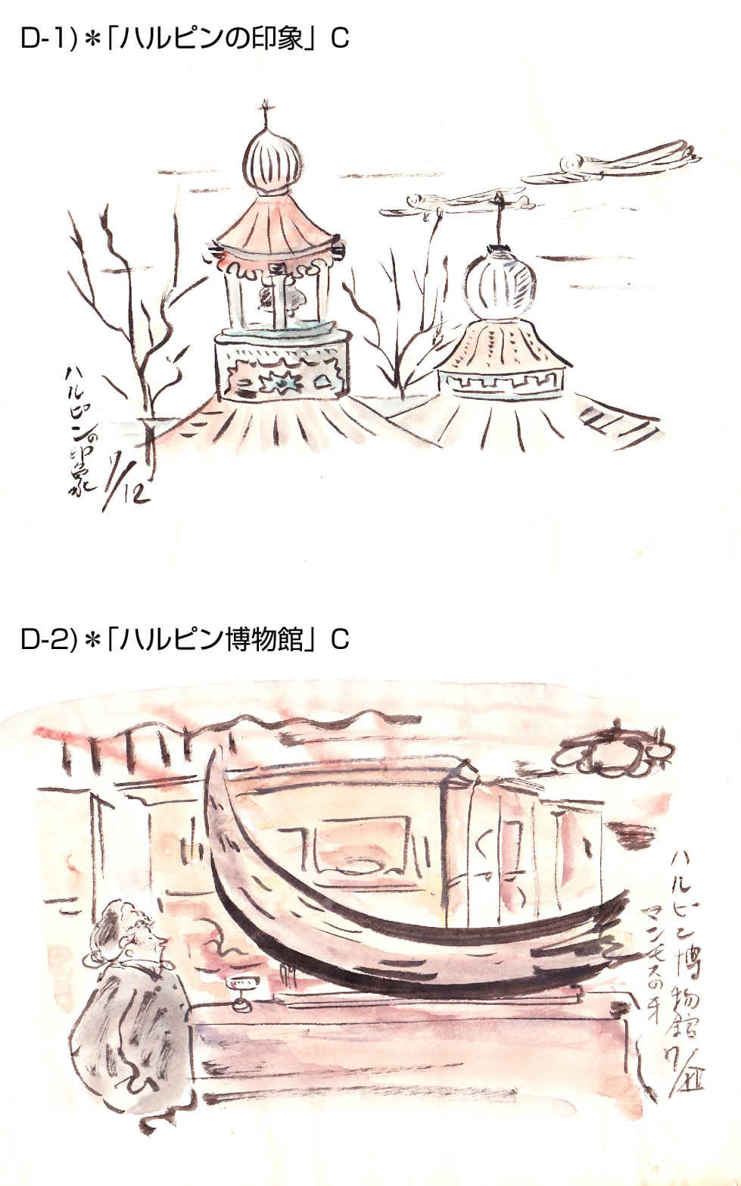 D-1)＊「ハルピンの印象」C
ハルピンの印象
1/12
D-2)＊「ハルピン博物館」C
ハルピン博物館
マンモスの牙